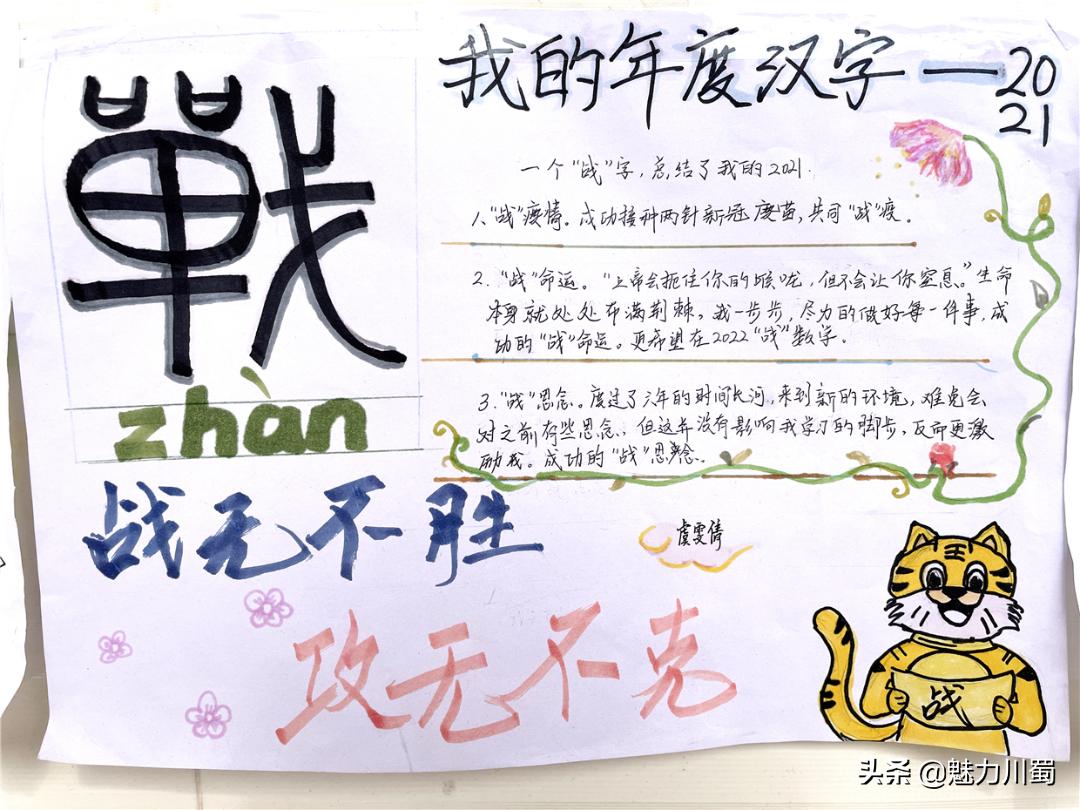 戰
zhàn
我的年度汉字—2021
一个"战"字，总结了我的2021.
1、"战"疫情。成功接种两针新冠疫苗，共同"战"疫。
2、"战"命运。"上帝会扼住你的喉咙，但不会让你窒息。"生命
本身就处处布满荆棘，我一步步，尽力的做好每一件事，成
功的"战"命运。更希望在2022"战"数学。
3、"战"思念。度过了六年的时间长河，来到新的环境，难免会
对之前有些思念，但这并没有影响我学习的脚步，反而更激
励我。成功的"战"思念。
战无不胜
虞雯倩
攻无不克
王
战
头条 @魅力川蜀